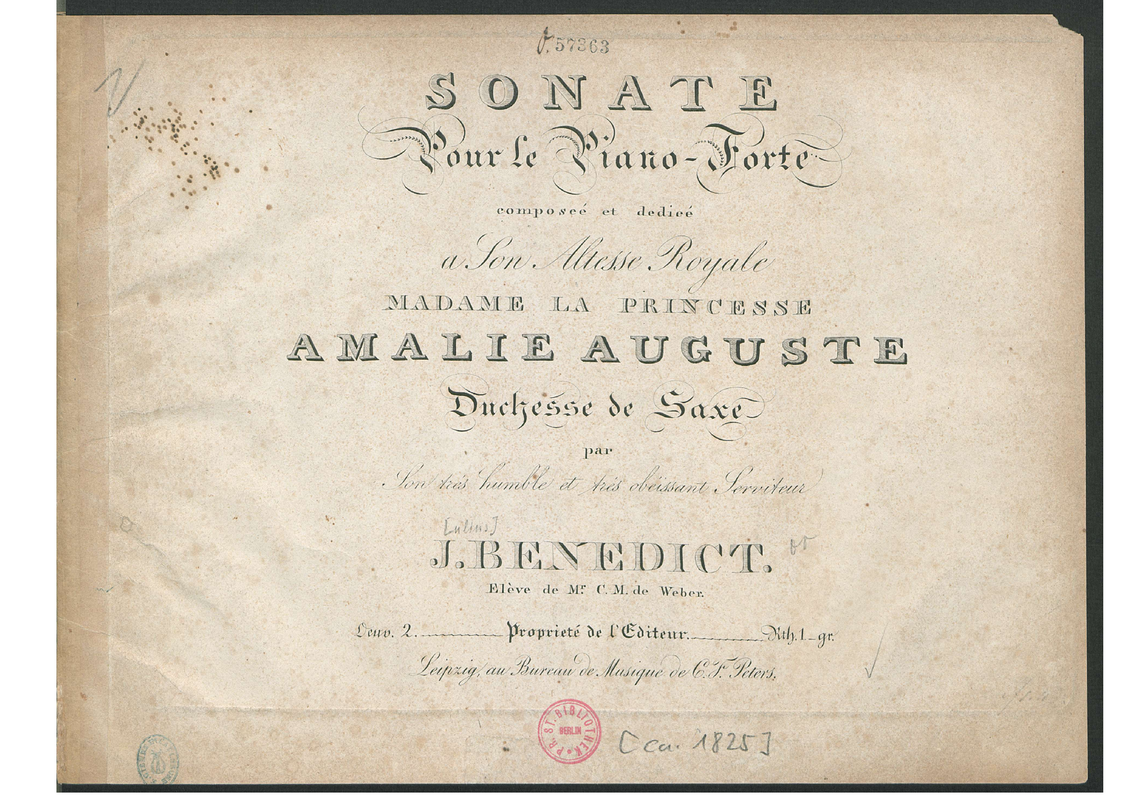 57363
SONATE
Pour le Piano-Forte
composeé et dedieé
a Son Altesse Royale
MADAME LA PRINCESSE
AMALIE AUGUSTE
Duchesse de Saxe
par
Son trés humble et trés obéissant Serviteur
[ulius]
J. BENEDICT.
Elève de Mr. C. M. de Weber.
Oeuv. 2. Proprieté de l'Editeur. Rth. 1 _ gr.
Leipzig, au Bureau de Musique de C. F. Peters.
PR. ST. BIBLIOTHEK BERLIN
[ca. 1825]